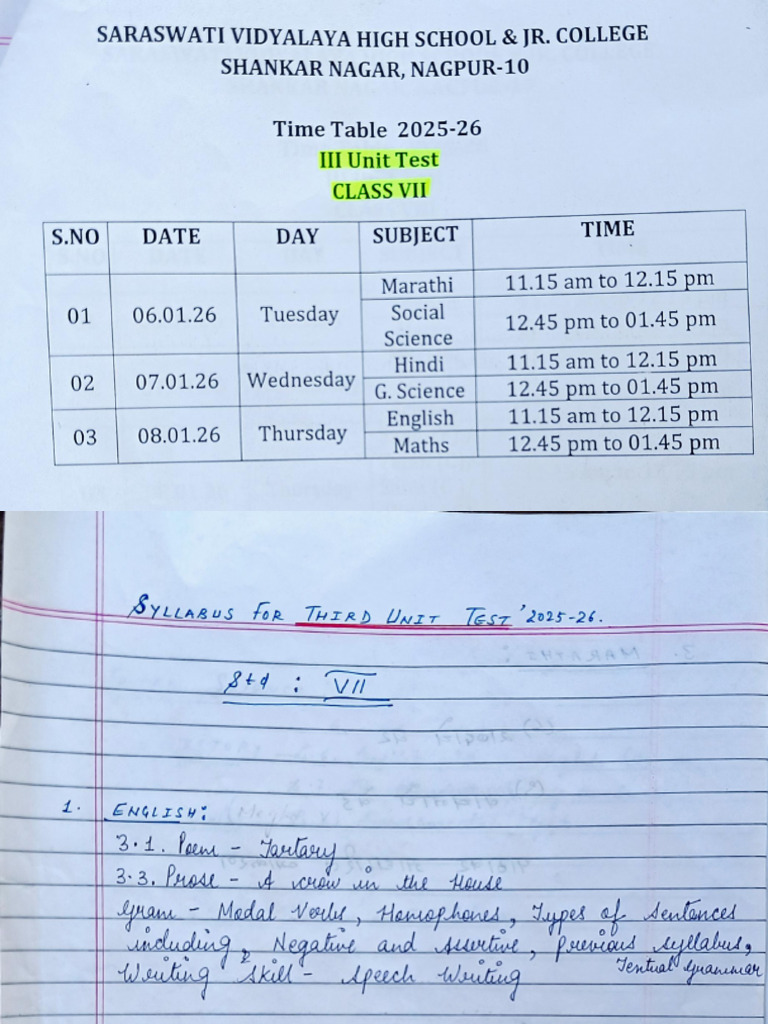 SARASWATI VIDYALAYA HIGH SCHOOL & JR. COLLEGE
SHANKAR NAGAR, NAGPUR-10
Time Table 2025-26
III Unit Test
CLASS VII
S.NO DATE DAY SUBJECT TIME
01 06.01.26 Tuesday Marathi 11.15 am to 12.15 pm
Social Science 12.45 pm to 01.45 pm
02 07.01.26 Wednesday Hindi 11.15 am to 12.15 pm
G. Science 12.45 pm to 01.45 pm
03 08.01.26 Thursday English 11.15 am to 12.15 pm
Maths 12.45 pm to 01.45 pm
SYLLABUS FOR THIRD UNIT TEST '2025-26.
Std : VII
1. ENGLISH:
3.1. Poem - Tartary
3.3. Prose - A crow in the House
Gram - Modal Verbs, Homophones, Types of Sentences
including, Negative and Assertive, previous syllabus,
Textual Grammar
Writing Skill - Speech Writing